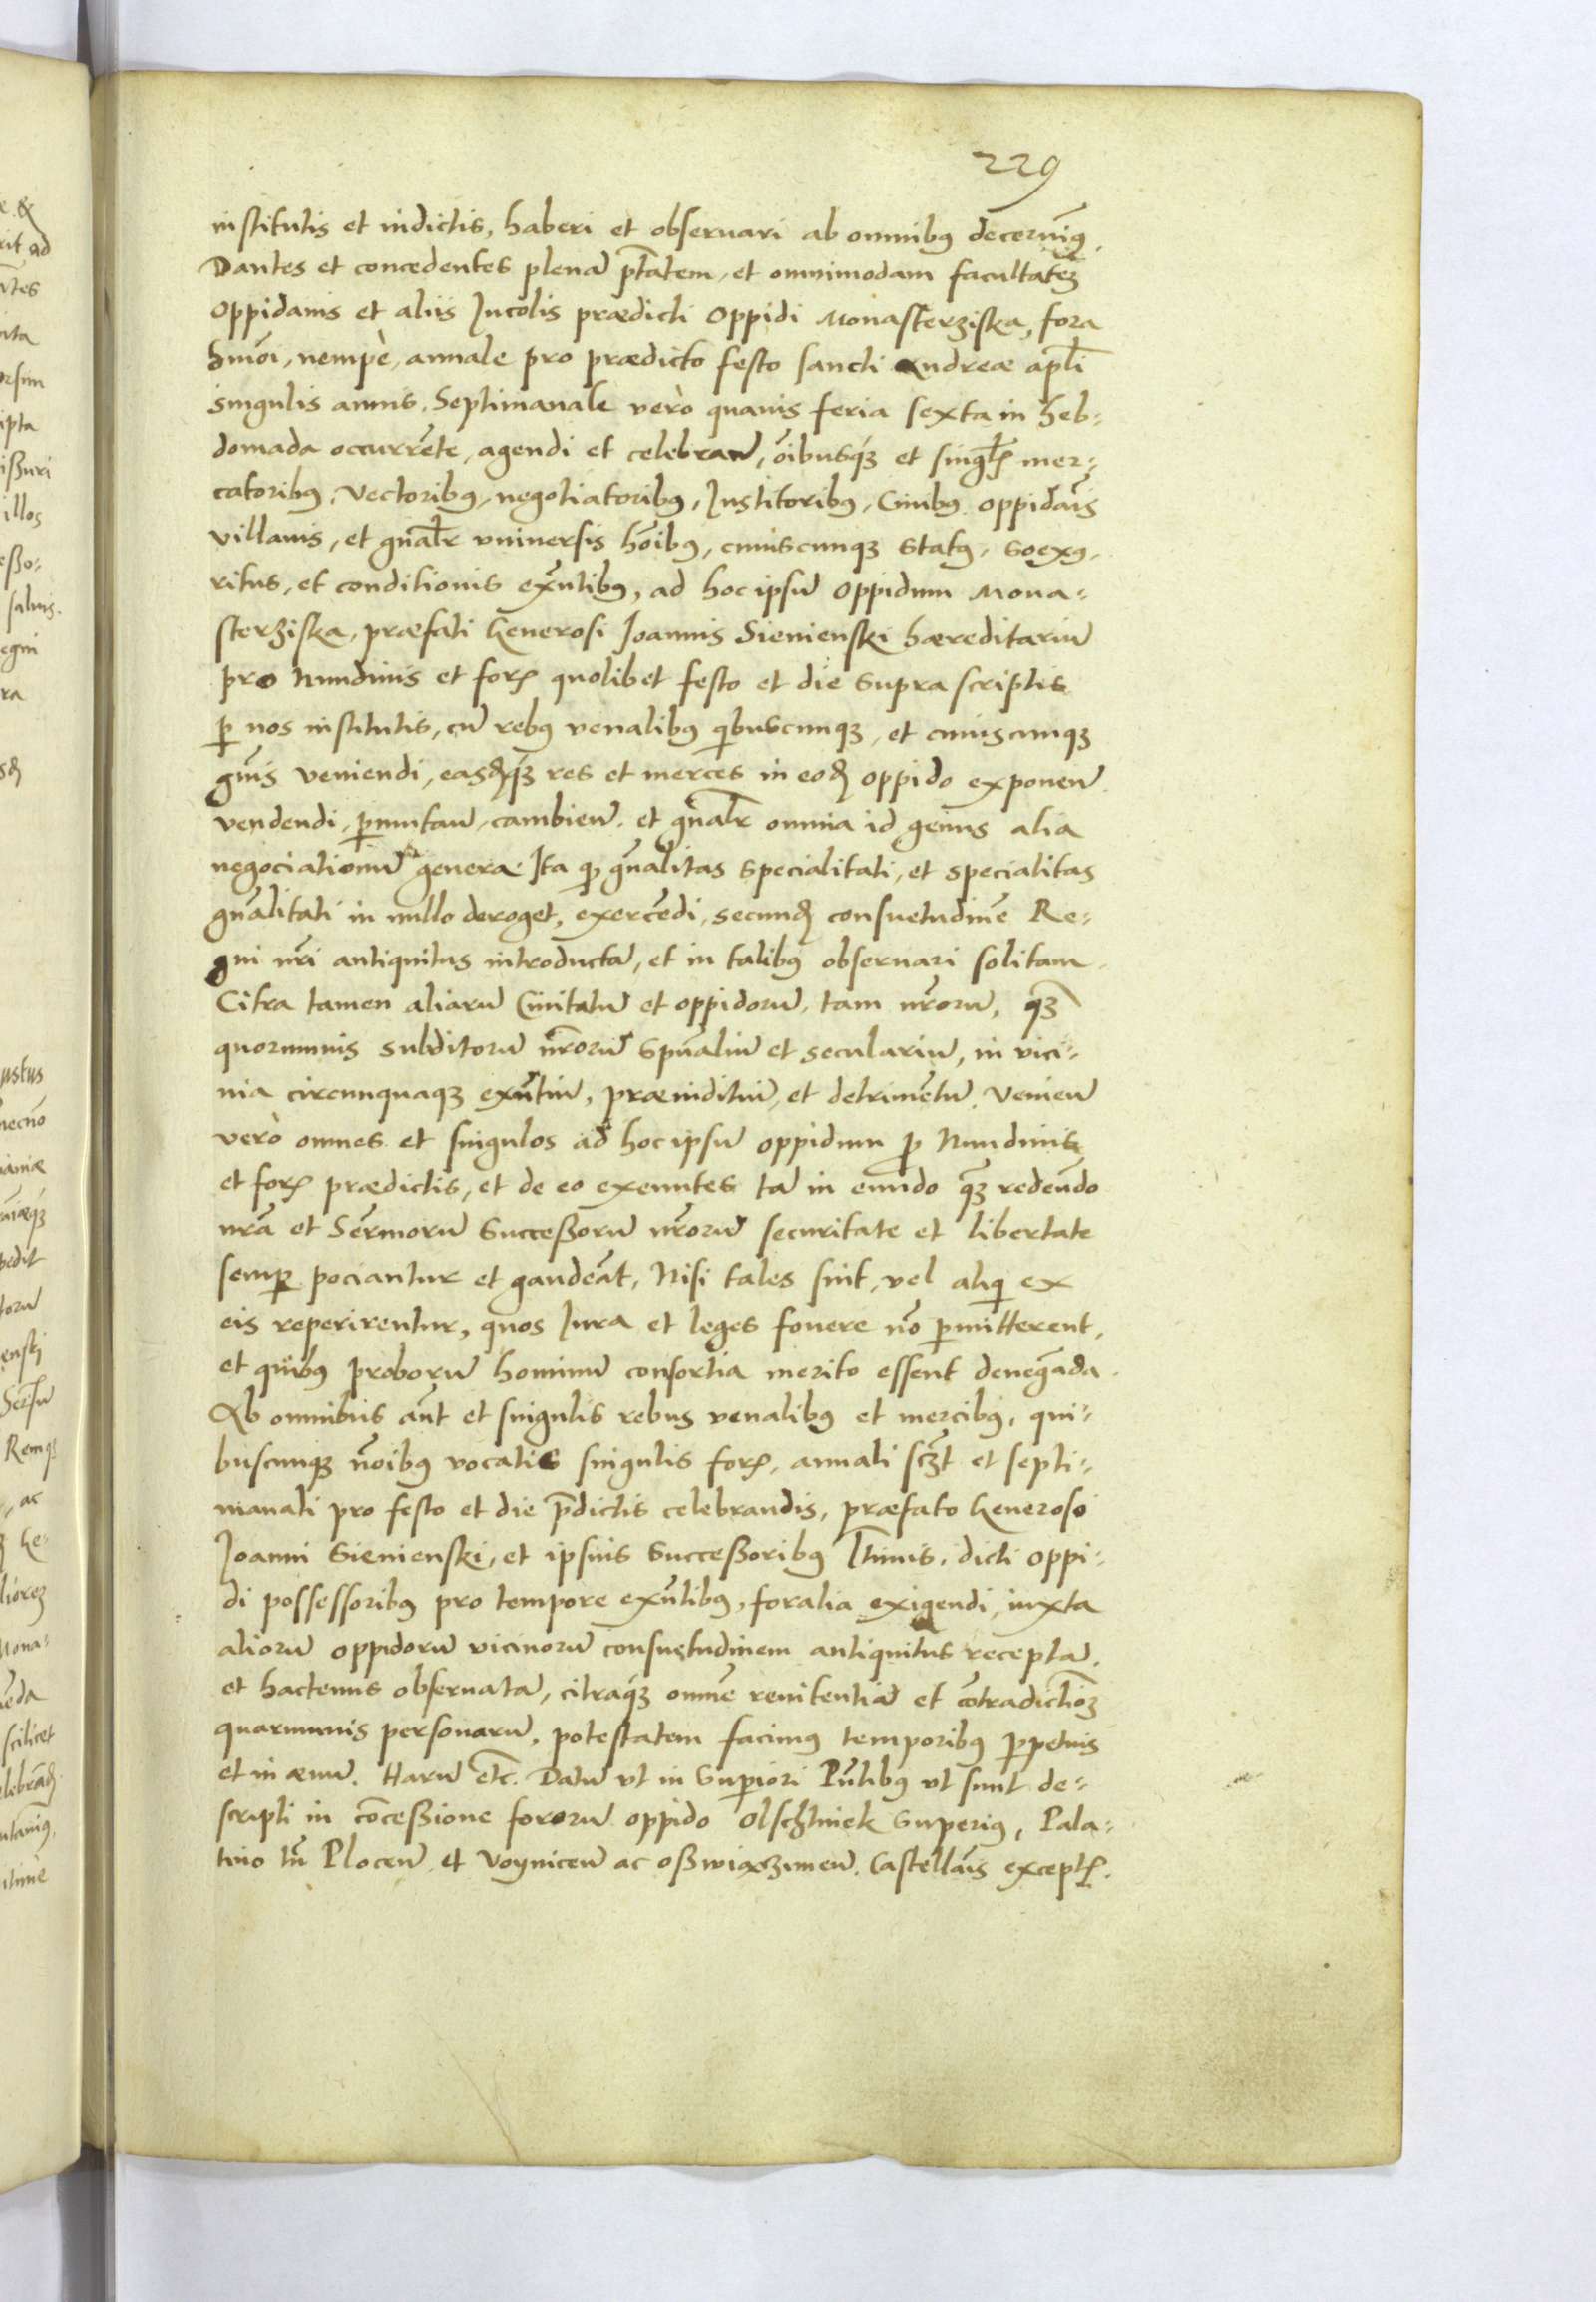 229
institutis et indictis, haberi et obseruari ab omnibꝰ decernimꝰ.
Dantes et concedentes plenā ptātem, et omnimodam facultatẽ
oppidanis et aliis Incolis prædicti oppidi Monasterziska, fora
hmōi, nempè, annale pro prædicto festo sancti Andreæ apľi
singulis annis, Septimanale verò quauis feria sexta in heb-
domada occurrēte, agendi et celebrań, oībusqꝫ et singľis mer-
catoribꝰ, Vectoribꝰ, negotiatoribꝰ, Institoribꝰ, Ciuibꝰ oppidāis
villanis, et gnaľr vniuersis hōibꝰ, cuiuscunqꝫ statꝰ, sexꝰ,
ritus, et conditionis exn̄tibꝰ, ad hoc ipsū oppidum Mona-
sterziska, præfati Generosi Joannis Sienienski hæreditariū
pro Nundinis et foris quolibet festo et die supra scriptis
ꝑ nos institutis, cū rebꝰ venalibꝰ qibuscunqꝫ, et cuiuscunqꝫ
gn̄is veniendi, easdqꝫ res et merces in eod oppido exponeń
vendendi, ꝑmutań, cambień, et gnaľr omnia id genus alia
negociationū genera. Ita qꝫ gn̄alitas specialitati, et specialitas
gn̄alitati in nullo deroget, exercēdi, secund consuetudinē Re-
gni nr̄i antiquitus introductā, et in talibꝰ obseruari solitam.
Citra tamen aliarū Ciuitatū et oppidorū, tam nr̄orū, qꝫ̄
quorumuis subditorū nr̄orū spūaliū et seculariū, in vici-
nia circumquaqꝫ exn̄tiū, præiuditiū, et detrimētū. Venień
verò omnes et singulos ad hoc ipsū oppidum ꝓ Nundinis
et foris prædictis, et de eo exeuntes tā in eundo qꝫ̄ redeūdo
nr̄a et Sermorū Successorū nr̄orū securitate et libertate
semꝑ pociantur et gaudeāt, Nisi tales sint, vel aliqi ex
eis reperirentur, quos Iura et leges fouere nō ꝑmitterent,
et quibꝰ proborū hominū consortia merito essent denegāda.
Ab omnibus aūt et singulis rebus venalibꝰ et mercibꝰ, qui-
buscunqꝫ nōibꝰ vocatis singulis foris, annali sczt et septi-
manali pro festo et die p̄dictis celebrandis, præfato Generoso
Joanni Sienienski, et ipsius Successoribꝰ ľtimis, dicti oppi-
di possessoribꝰ pro tempore exn̄tibꝰ, foralia exigendi, iuxta
aliorū oppidorū vicinorū consuetudinem antiquitus receptā,
et hactenus obseruatā, citraqꝫ omnē renitentiā et cōtradictiōꝫ
quarumuis personarū, potestatem facimꝰ temporibꝰ ꝑpetuis
et in æuū. Harū etc. Datū vt in suꝑiori Pn̄tibꝰ vt sunt de-
scripti in cōcessione fororū oppido Olschtinek superiꝰ, Pala-
tino tn̄ Ploceń et Voyniceń ac Osswiæczimeń. Castellāis exceptis.